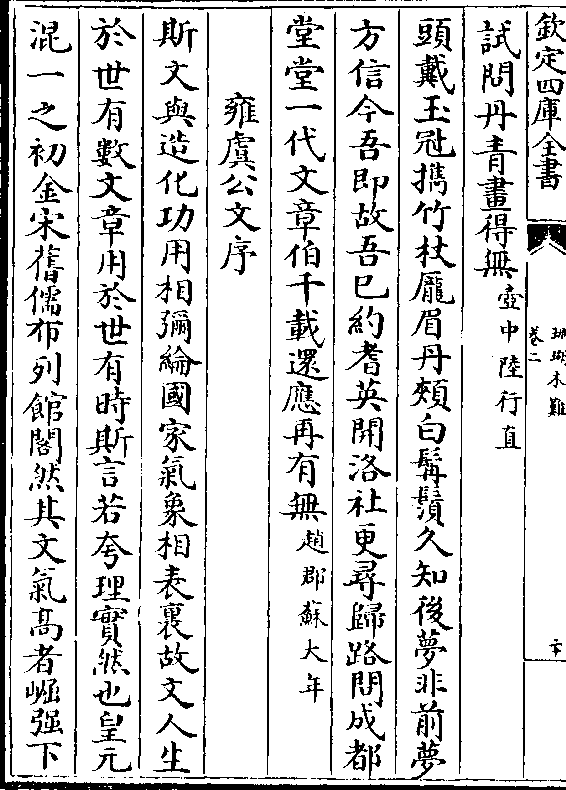 欽定四庫全書
珊瑚木難
卷二
試問丹青畫得無壺中陸行直
頭戴玉冠攜竹杖龎眉丹頰白髯鬚久知後夢非前夢
方信今吾即故吾已約耆英開洛社更尋歸路問成都
堂堂一代文章伯千載還應再有無趙郡蘇大年
雍虞公文序
斯文與造化功用相彌綸國家氣象相表裏故文人生
於世有數文章用於世有時斯言若夸理實然也皇元
混一之初金宋舊儒布列館閣然其文氣髙者崛强下